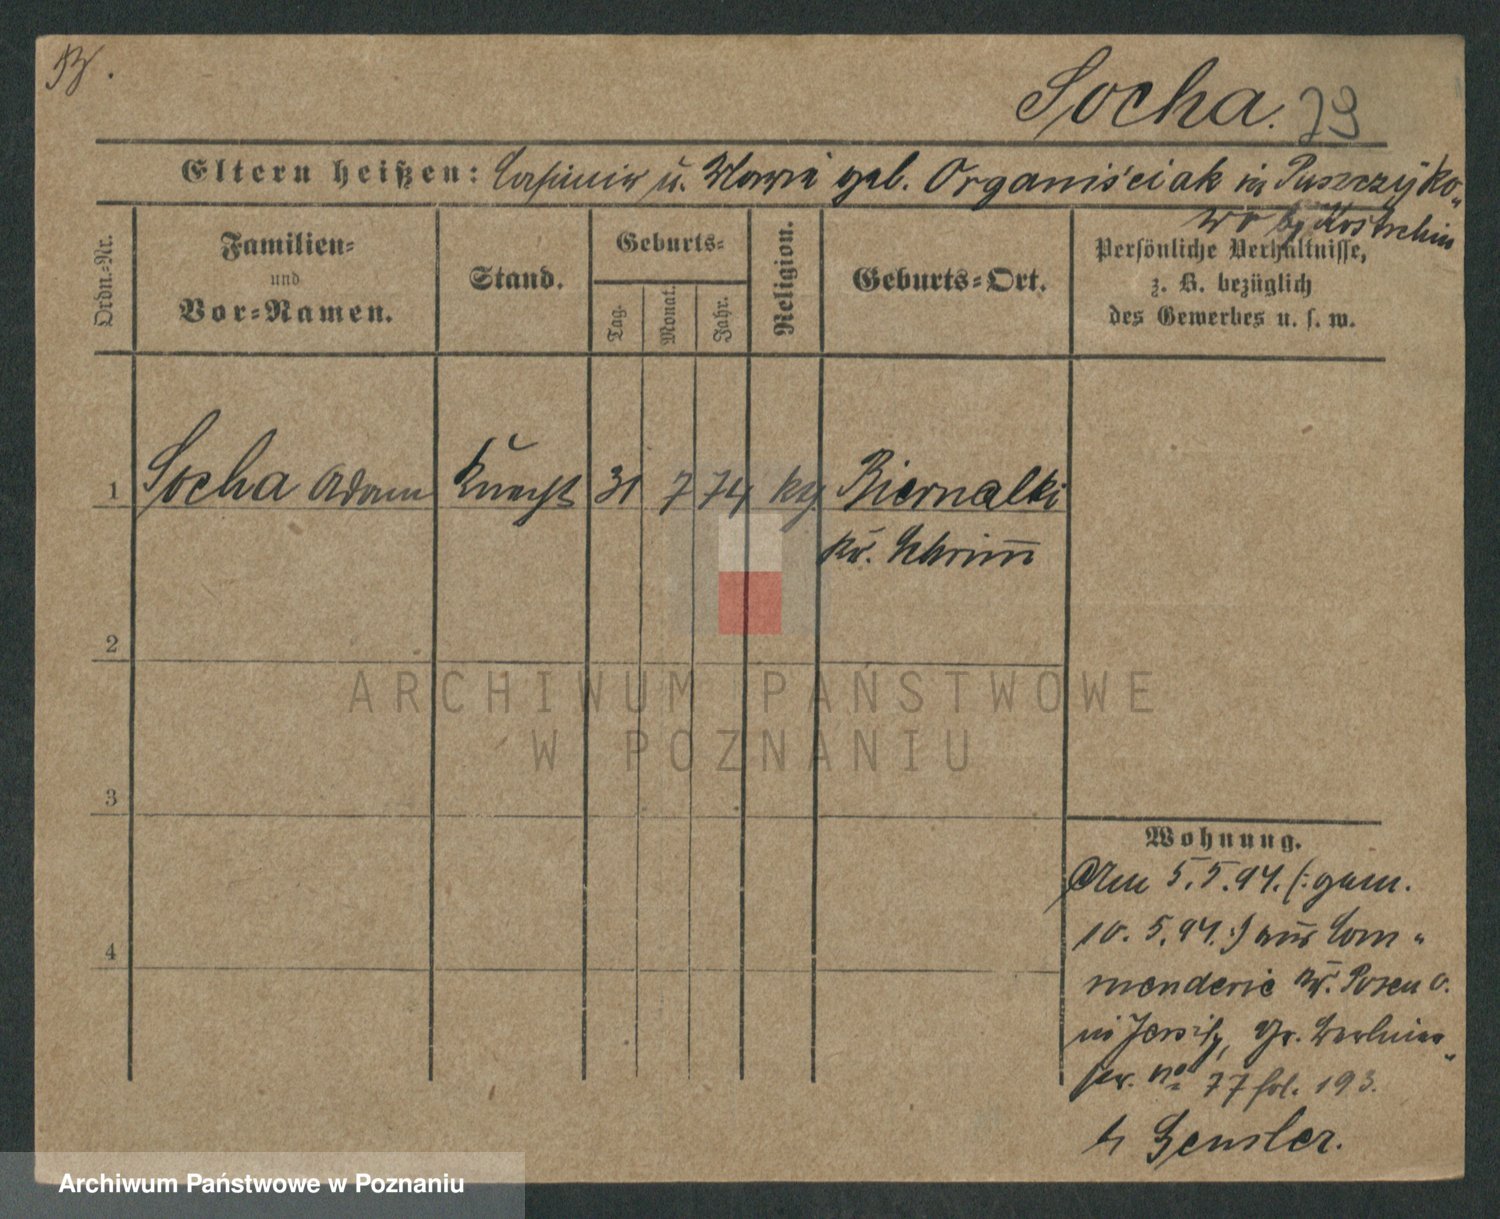 Socha. 79
Eltern heißen: Casimir u. Maria geb. Organiściak in Puszczyko-
wo by Kostrchin
Ordn.-Nr.
Familien-
und
Vor-Namen.
Stand.
Geburts-
Tag.
Monat.
Jahr.
Religion.
Geburts-Ort.
Persönliche Verhältnisse,
z. B. bezüglich
des Gewerbes u. s. w.
1 Socha Adam Knecht 31 7 74 kg Biernatki
Kr. Schrimm
2
3
4
Wohnung.
Am 5.5.94. (:gem.
10. 5.94.:) aus Com-
menderie Kr. Posen O.
in Jersitz, Gr. Berliner-
str. No 77 fol. 193.
b Gensler.
ARCHIWUM PAŃSTWOWE
W POZNANIU
Archiwum Państwowe w Poznaniu